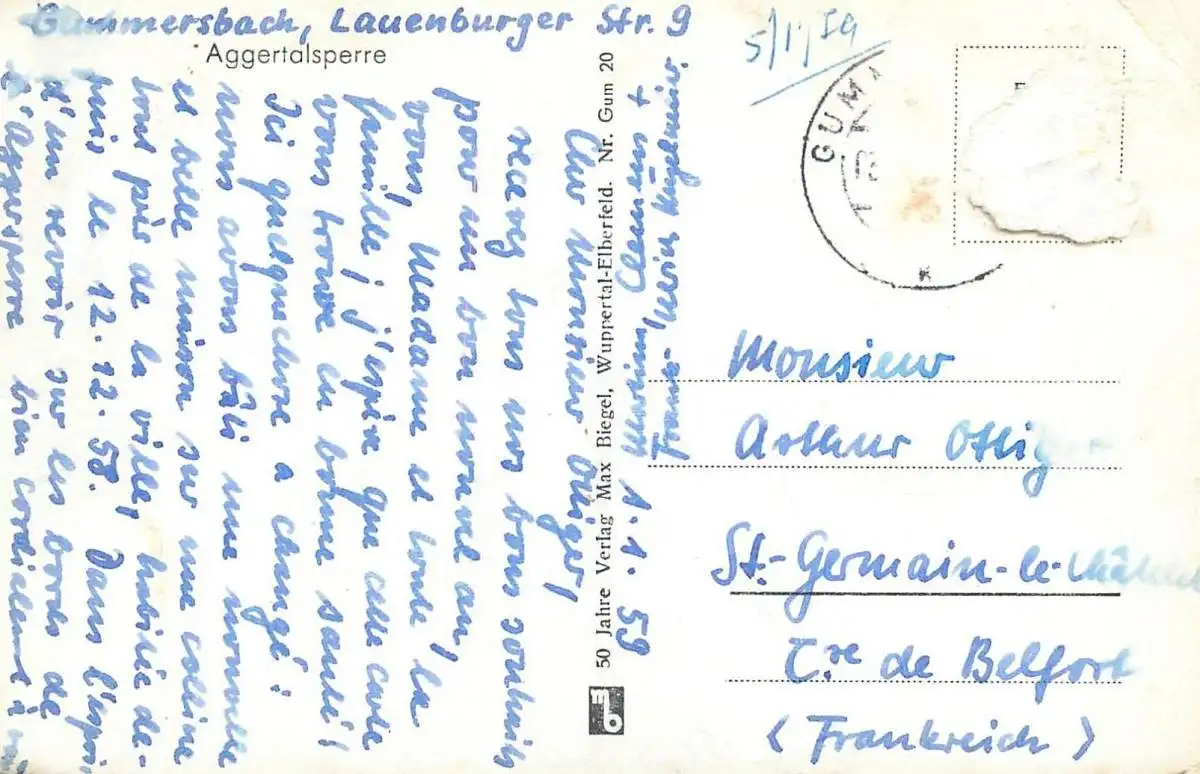 Gummersbach, Lauenburger Str. 9
Aggertalsperre
5/1/59
GUM
1. 1. 59
Cher Monsieur Otiger,
recevez tous nos bons souhaits
pour un bon nouvel an,
vous, Madame et toute la
famille; j'espère que cette carte
vous trouve en bonne santé!
Ici quelquechose a changé:
nous avons bâti une nouvelle
et belle maison sur une colline
tout près de la ville, habitée de-
puis le 12. 12. 58. Dans l'espoir
d'un revoir sur les bords de
l'Aggersperre bien cordialement à
Clemens +
50 Jahre Verlag Max Biegel, Wuppertal-Elberfeld. Nr. Gum 20
Monsieur
Arthur Ottiger
St.-Germain-le-Châtelet
Tre de Belfort
(Frankreich)